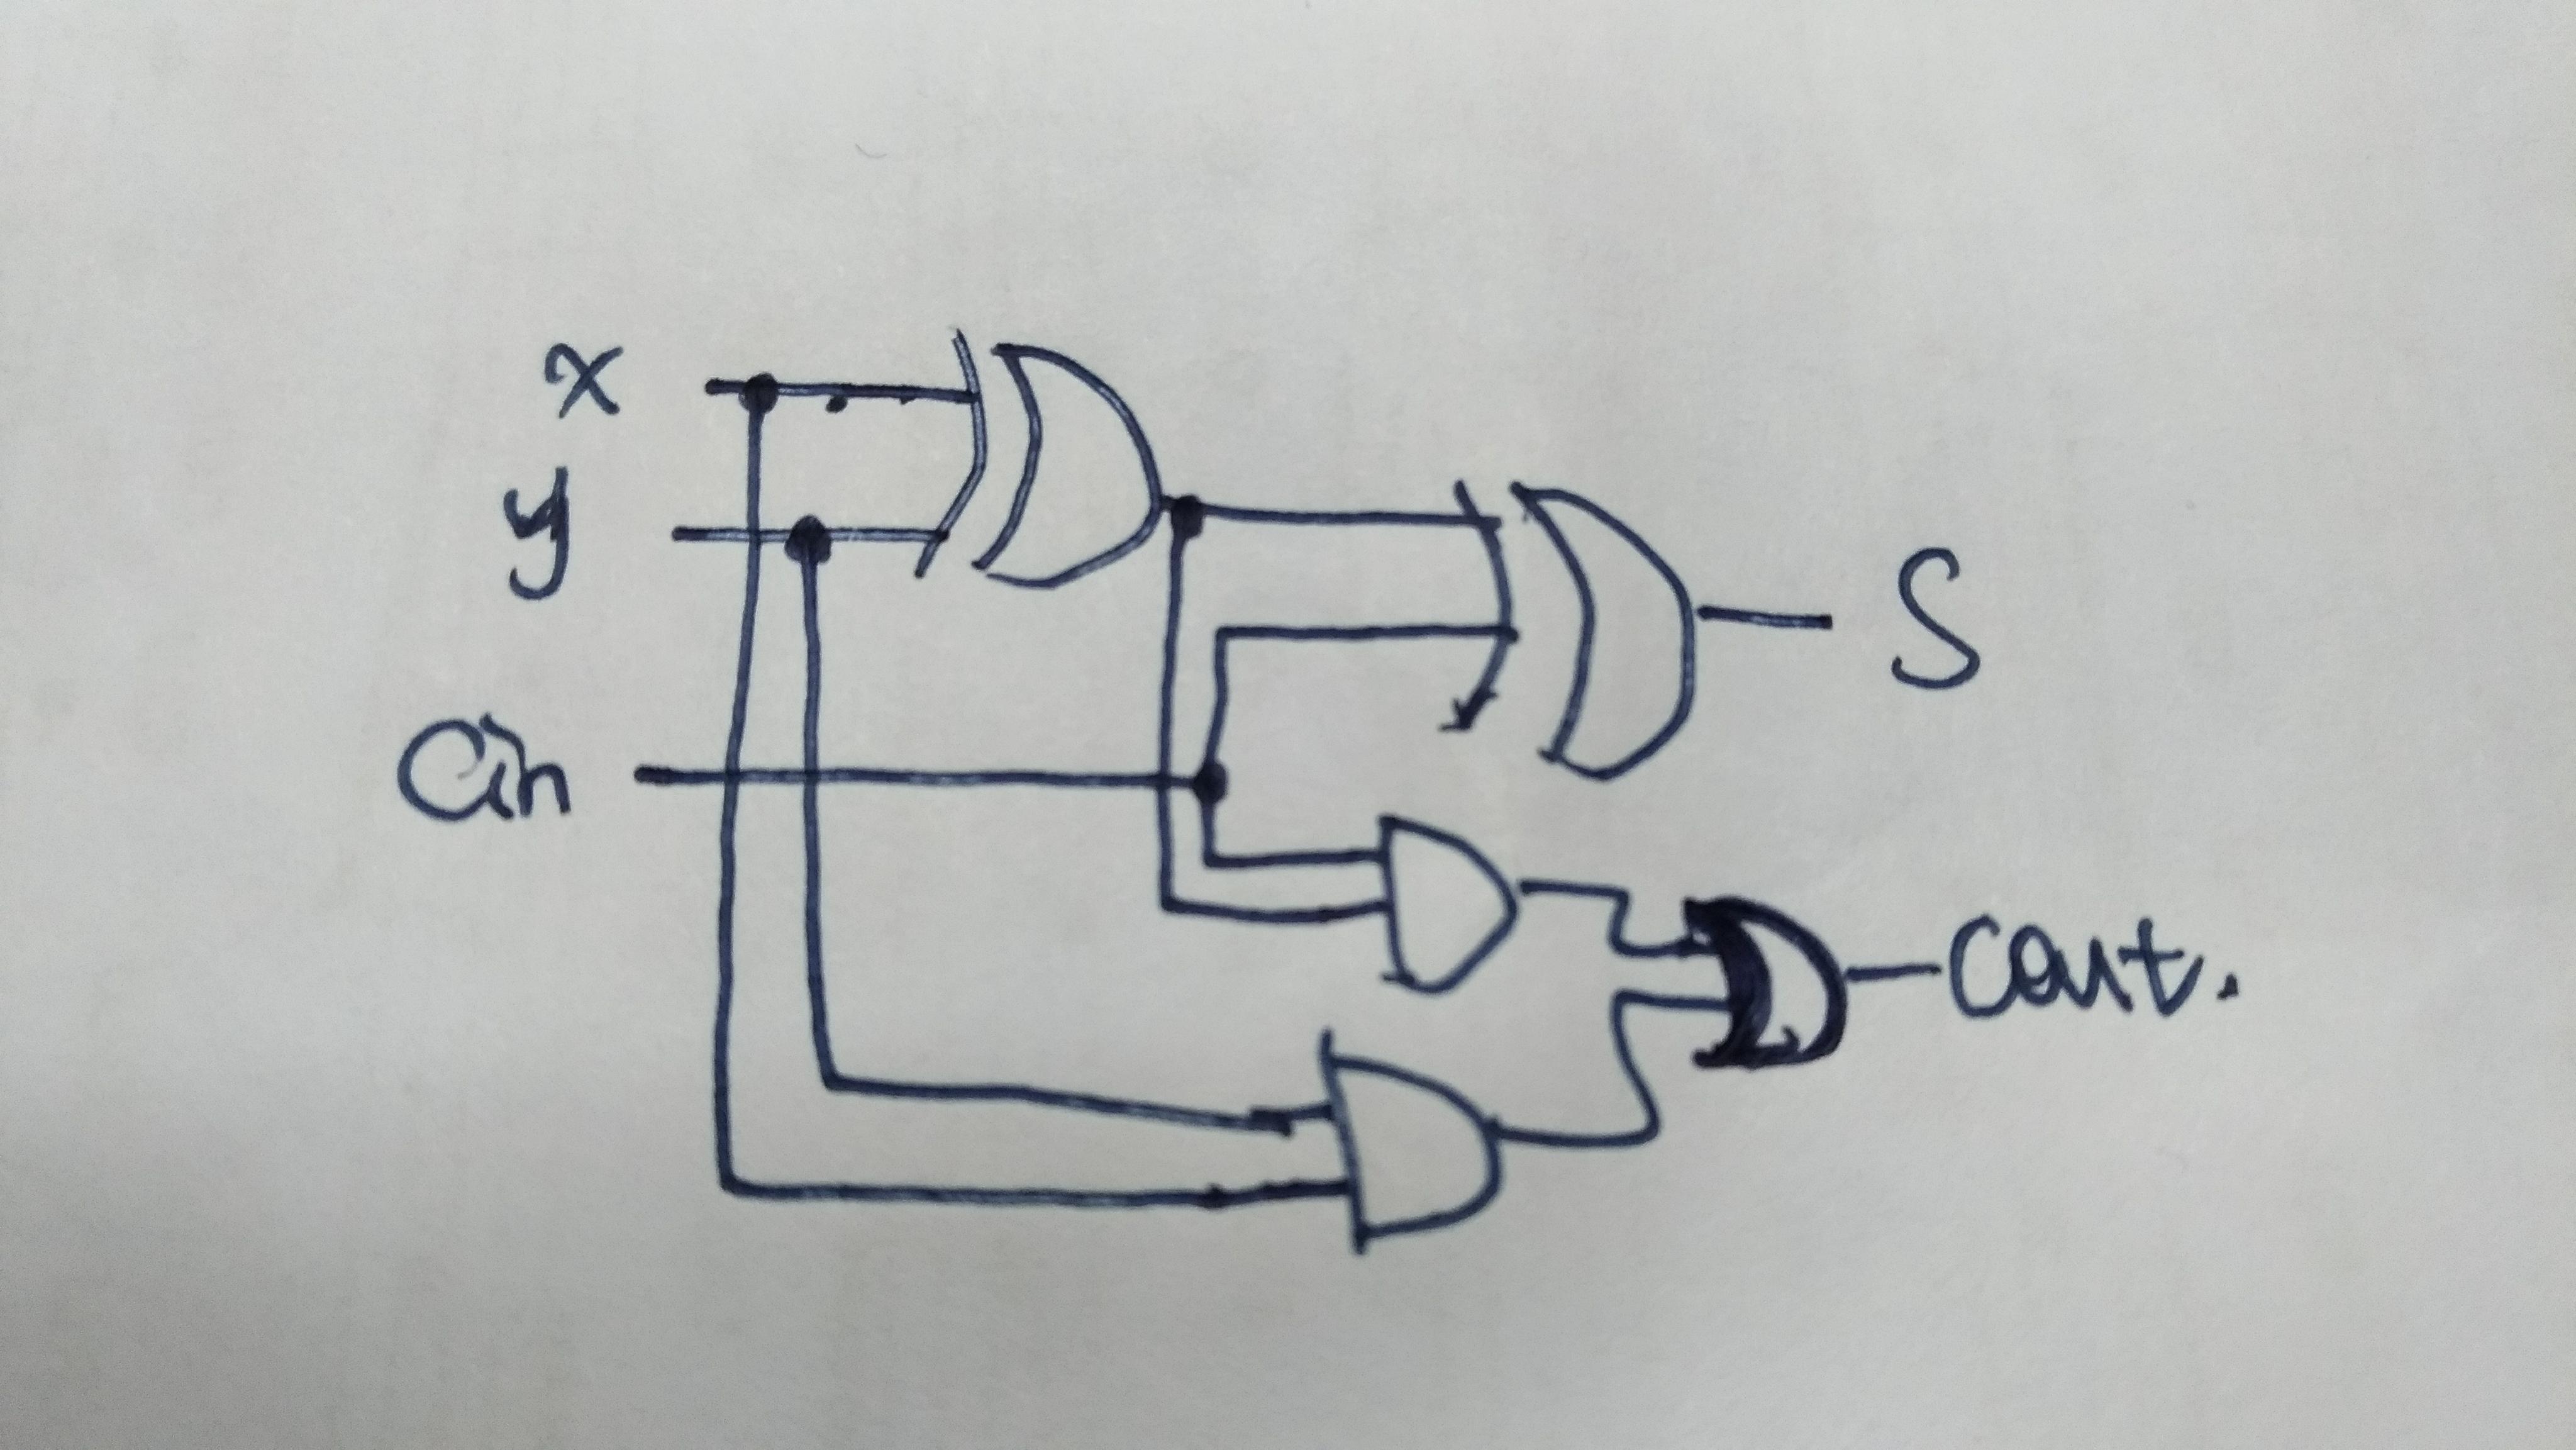 x
y
Cin
S
Cout.